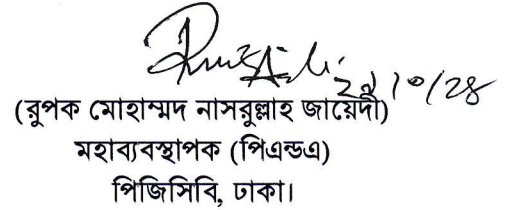 (রুপক মোহাম্মদ নাসরুল্লাহ জায়েদী)
মহাব্যবস্থাপক (পিএন্ডএ)
পিজিসিবি, ঢাকা।